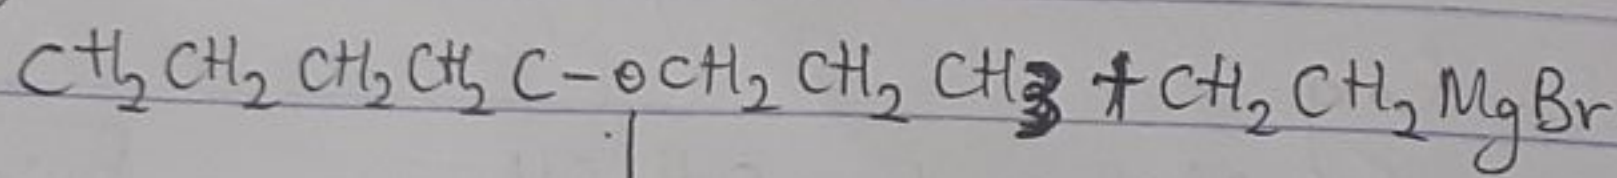 CH₂CH₂CH₂CH₂C-OCH₂CH₂CH₃ + CH₂CH₂MgBr